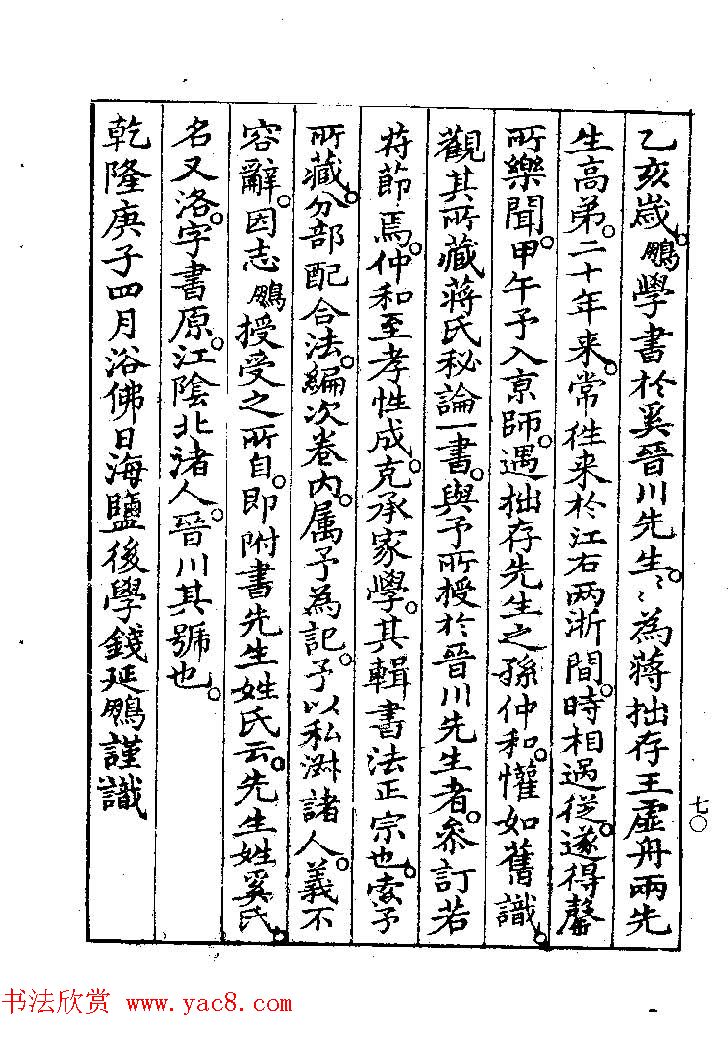 乙亥歲。鵬學書於奚晉川先生。〻為蔣拙存王虛舟兩先
生高弟。二十年来。常往来於江右两浙間。時相過從。遂得罄
所樂聞。甲午予入京師。遇拙存先生之孫仲和。懽如舊識。
觀其所藏蔣氏秘論一書。與予所授於晉川先生者。參訂若
符節焉。仲和至孝性成。克承家學。其輯書法正宗也。索予
所藏。分部配合法。編次卷内。属予為記。予以私淑諸人。義不
容辭。因志鵬授受之所自。即附書先生姓氏云。先生姓奚氏
名又洛。字書原。江陰北渚人。晉川其號也。
乾隆庚子四月浴佛日海鹽後學錢延鵬謹識
七〇
书法欣赏 www.yac8.com